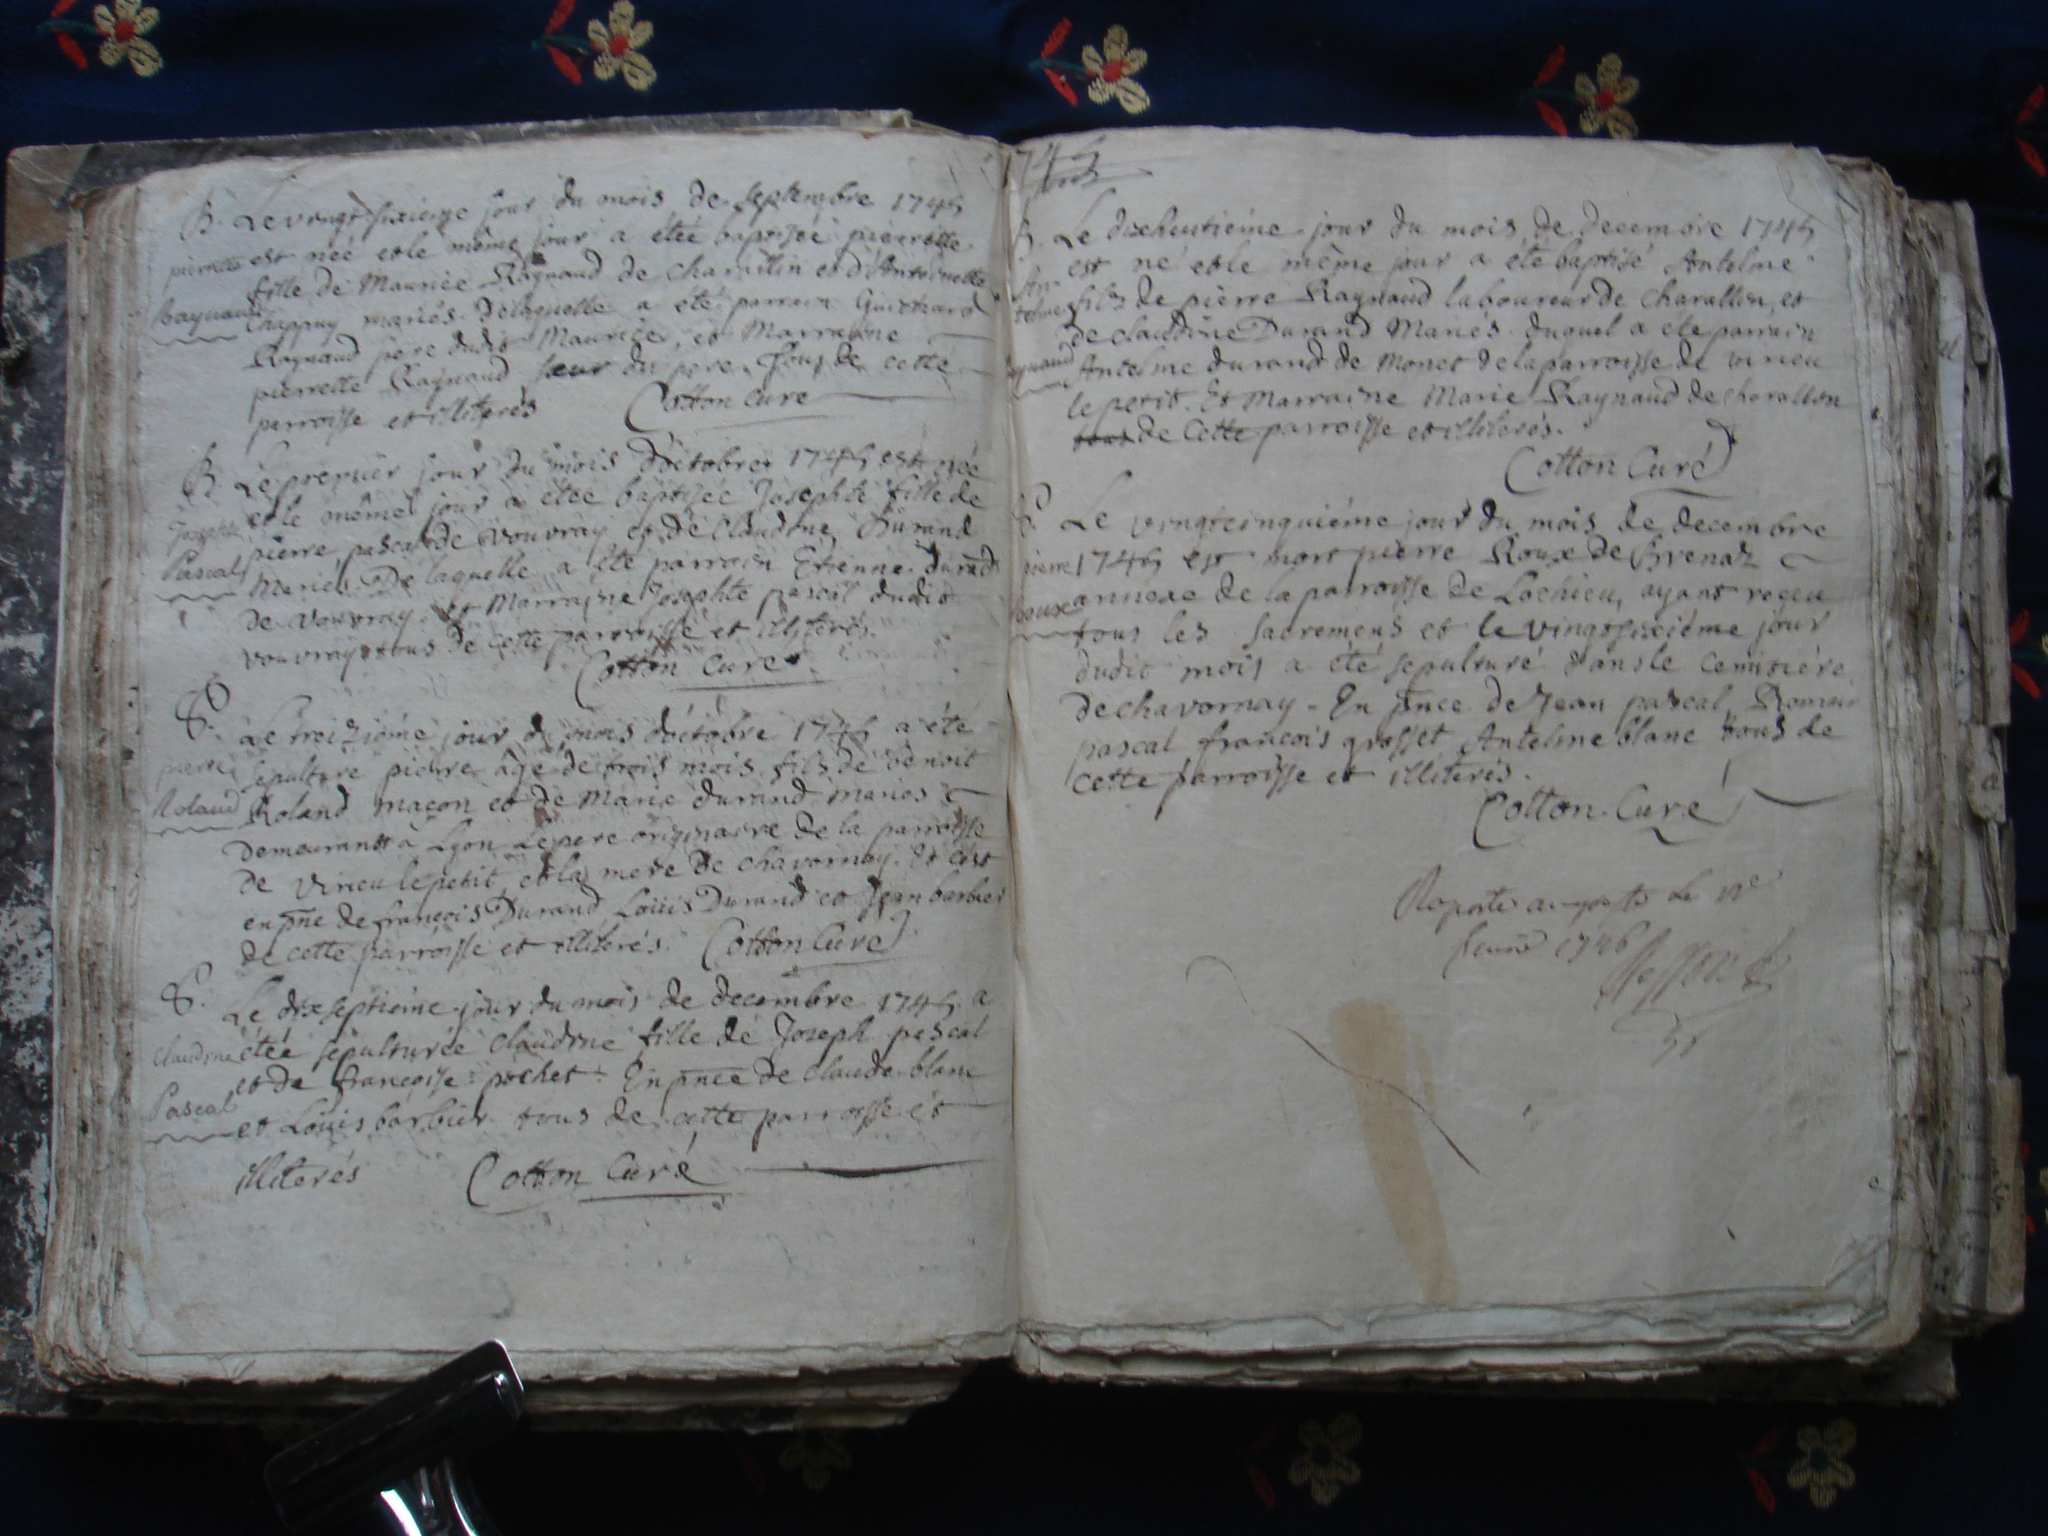 B. Le vingt sixieme jour du mois de septembre 1745
pierrette est née et le même jour a étée baptisée pierrette
Raynaud fille de Maurice Raynaud de charaillin et d'Antoinette
Chappuy mariés. De laquelle a été parrain Guichard
Raynaud pere dudit Maurice, et Marraine
pierrette Raynaud, sœur du pere. Tous de cette
parroisse et illiterés Cotton Curé
B. Le premier jour du mois d'octobre 1745 est née
Josephte et le même jour a étée baptisée Josephte fille de
Pascal pierre pascal de vouvray et de Claudine Durand
Mariés. De laquelle a été parrain Etienne durand
de vouvray. et Marraine Josephte pascal dudit
vouvray tous de cette parroisse et illiterés.
Cotton Curé
S. Le treiziéme jour du mois d'octobre 1745 a été
pierre sepulture pierre âgé de trois mois fils de benoit
Roland Roland maçon et de Marie durand mariés
demeurants à Lyon Le pere originaire de la parroisse
de virieu le petit et la mere de chavornay. Et c'est
en pñe de françois Durand Loüis Durand et Jean barbier
de cette parroisse et illiterés. Cotton Curé
S. Le dixseptiéme jour du mois de decembre 1745 a
claudine étée sépulturée claudine fille de Joseph pascal
et de françoise pochet. En pñce de claude blanc
Pascal et Loüis barbier tous de cette parroisse et
illiterés Cotton Curé
B. Le dixhuitiéme jour du mois de decembre 1745
est né et le même jour a été baptisé Antelme
An-telme fils de pierre Raynaud laboureur de charallin, et
de claudine Durand Mariés. duquel a eté parrain
Raynaud Antelme durand de Monet de la parroisse de virieu
le petit. Et Marraine Marie Raynaud de charallin
tous de Cette parroisse et illiterés.
Cotton Curé
S. Le vingtcinquiéme jour du mois de decembre
pierre 1745 est mort pierre Roux de Brenaz
Roux annexe de la parroisse de Lochieu, ayant reçeu
tous les sacremens et le vingtsixiéme jour
dudit mois a été sepulturé dans le cemitiére
de chavornay. En pñce de Jean pascal, Romain
pascal françois grosset Antelme blanc tous de
cette parroisse et illiterés.
Cotton Curé
1746